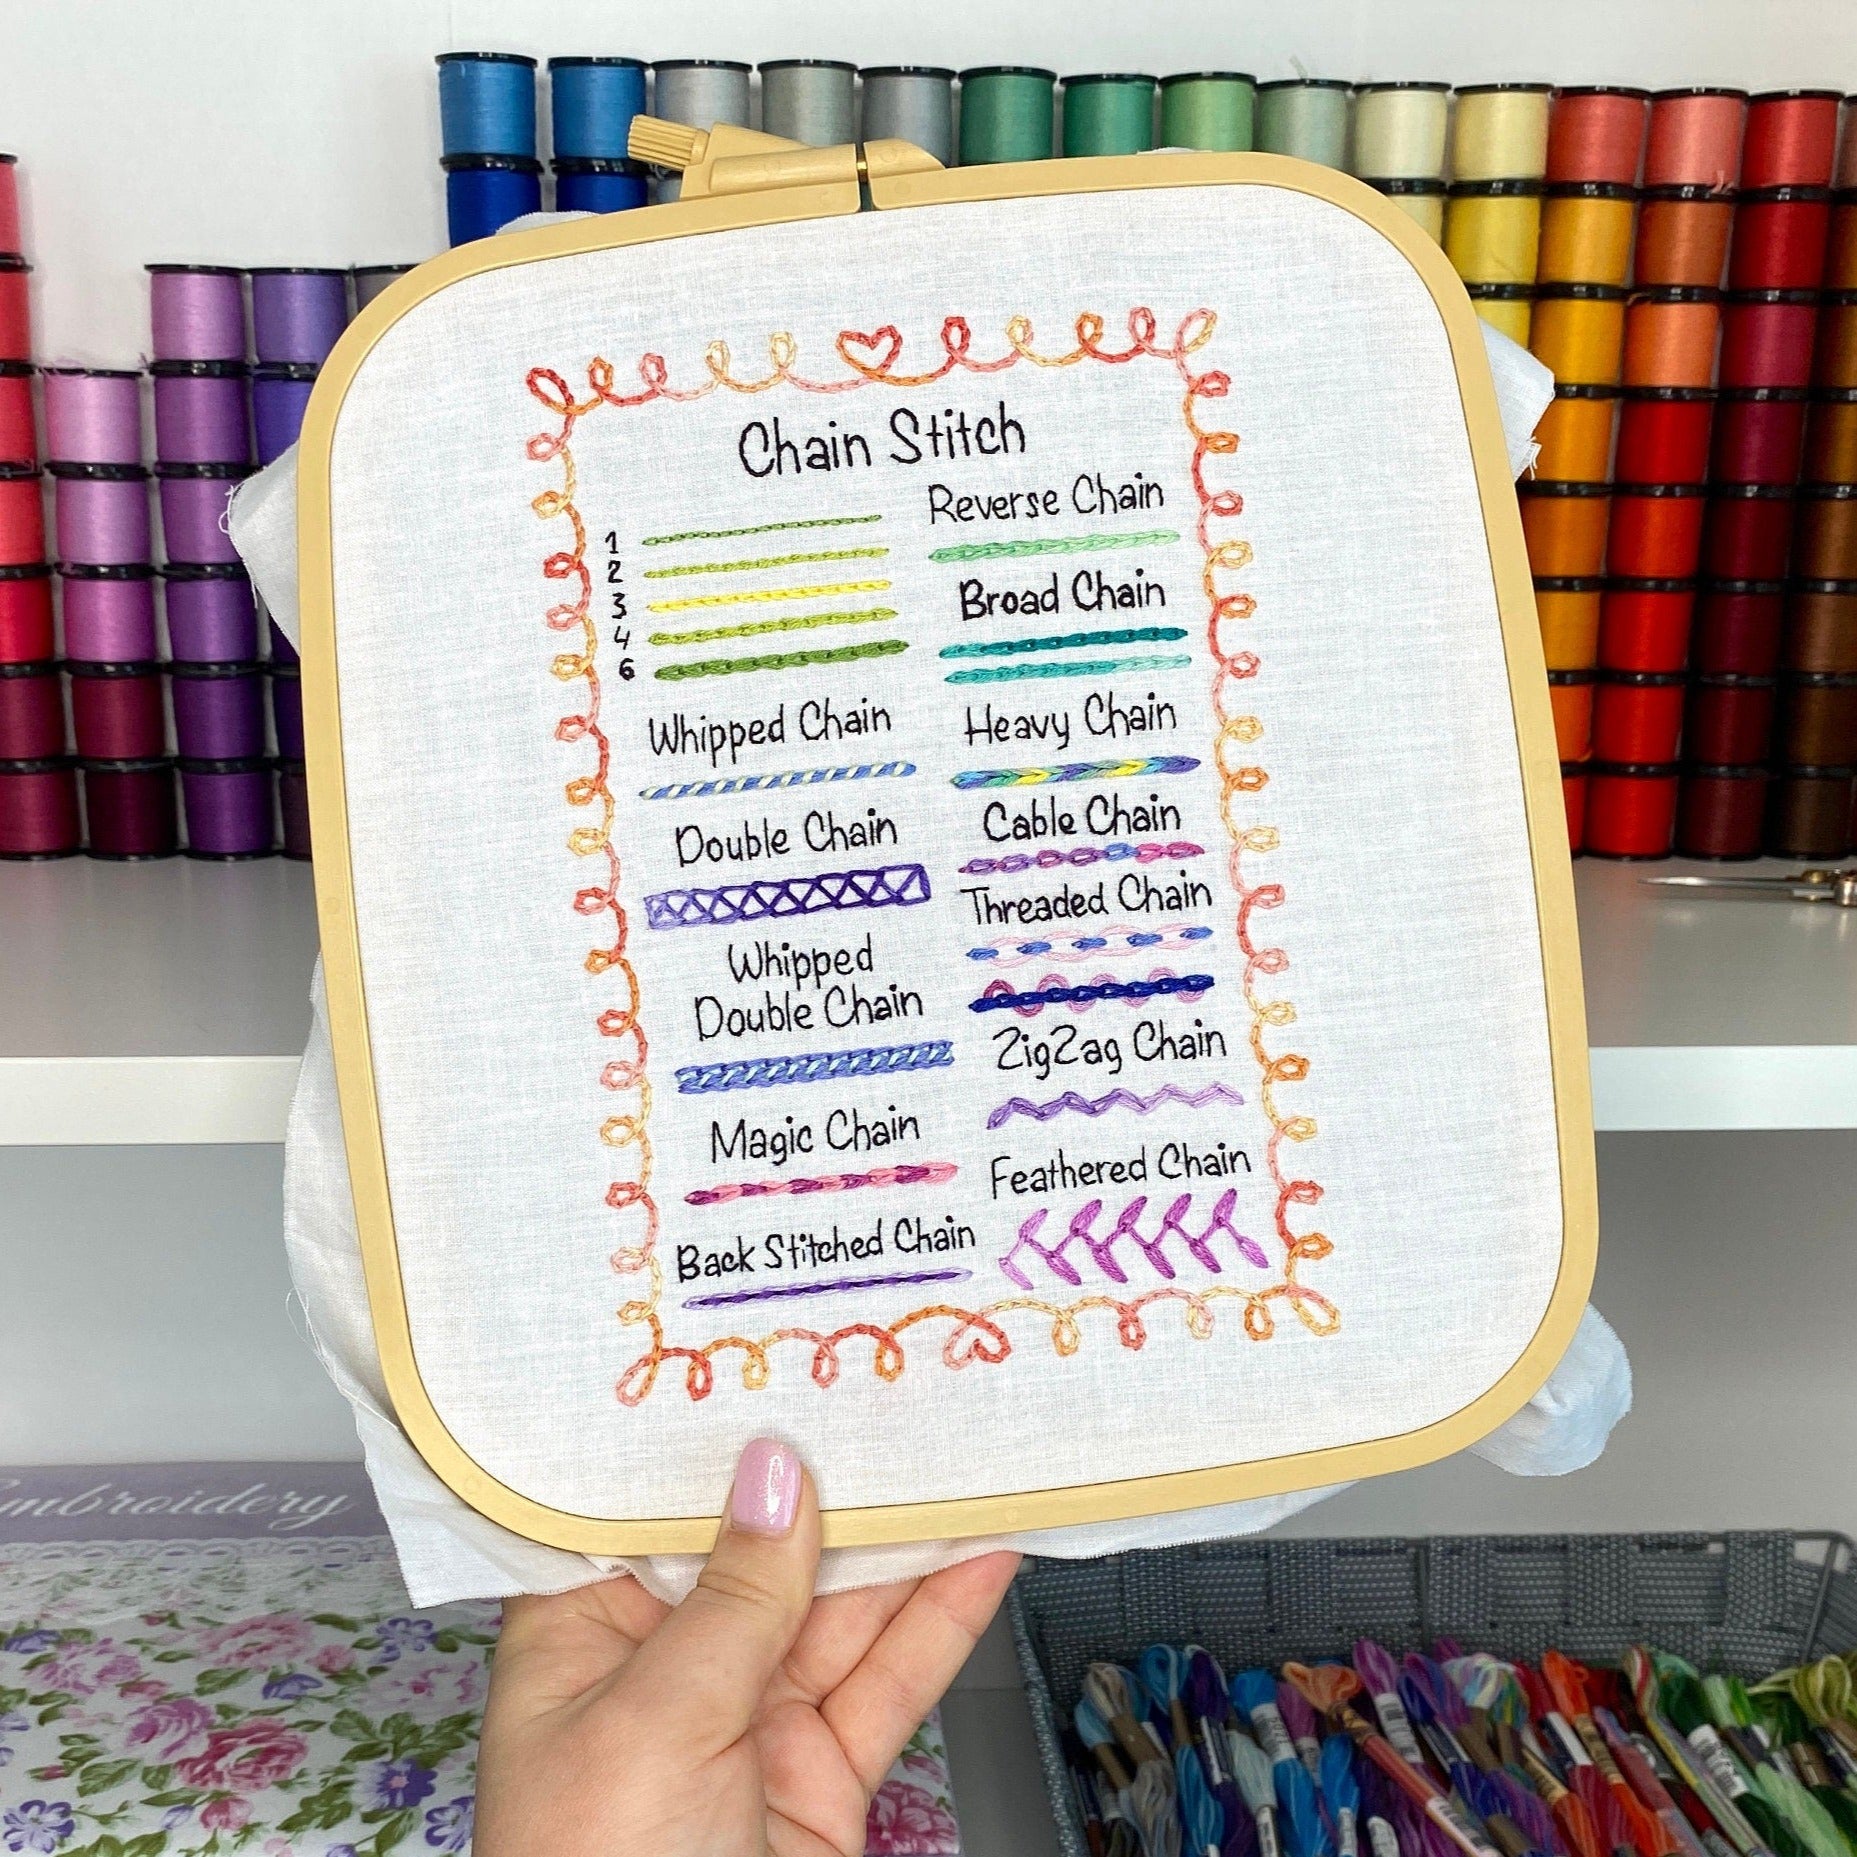 Chain Stitch
1
2
3
4
6
Whipped Chain
Double Chain
Whipped
Double Chain
Magic Chain
Back Stitched Chain
Reverse Chain
Broad Chain
Heavy Chain
Cable Chain
Threaded Chain
ZigZag Chain
Feathered Chain
Embroidery